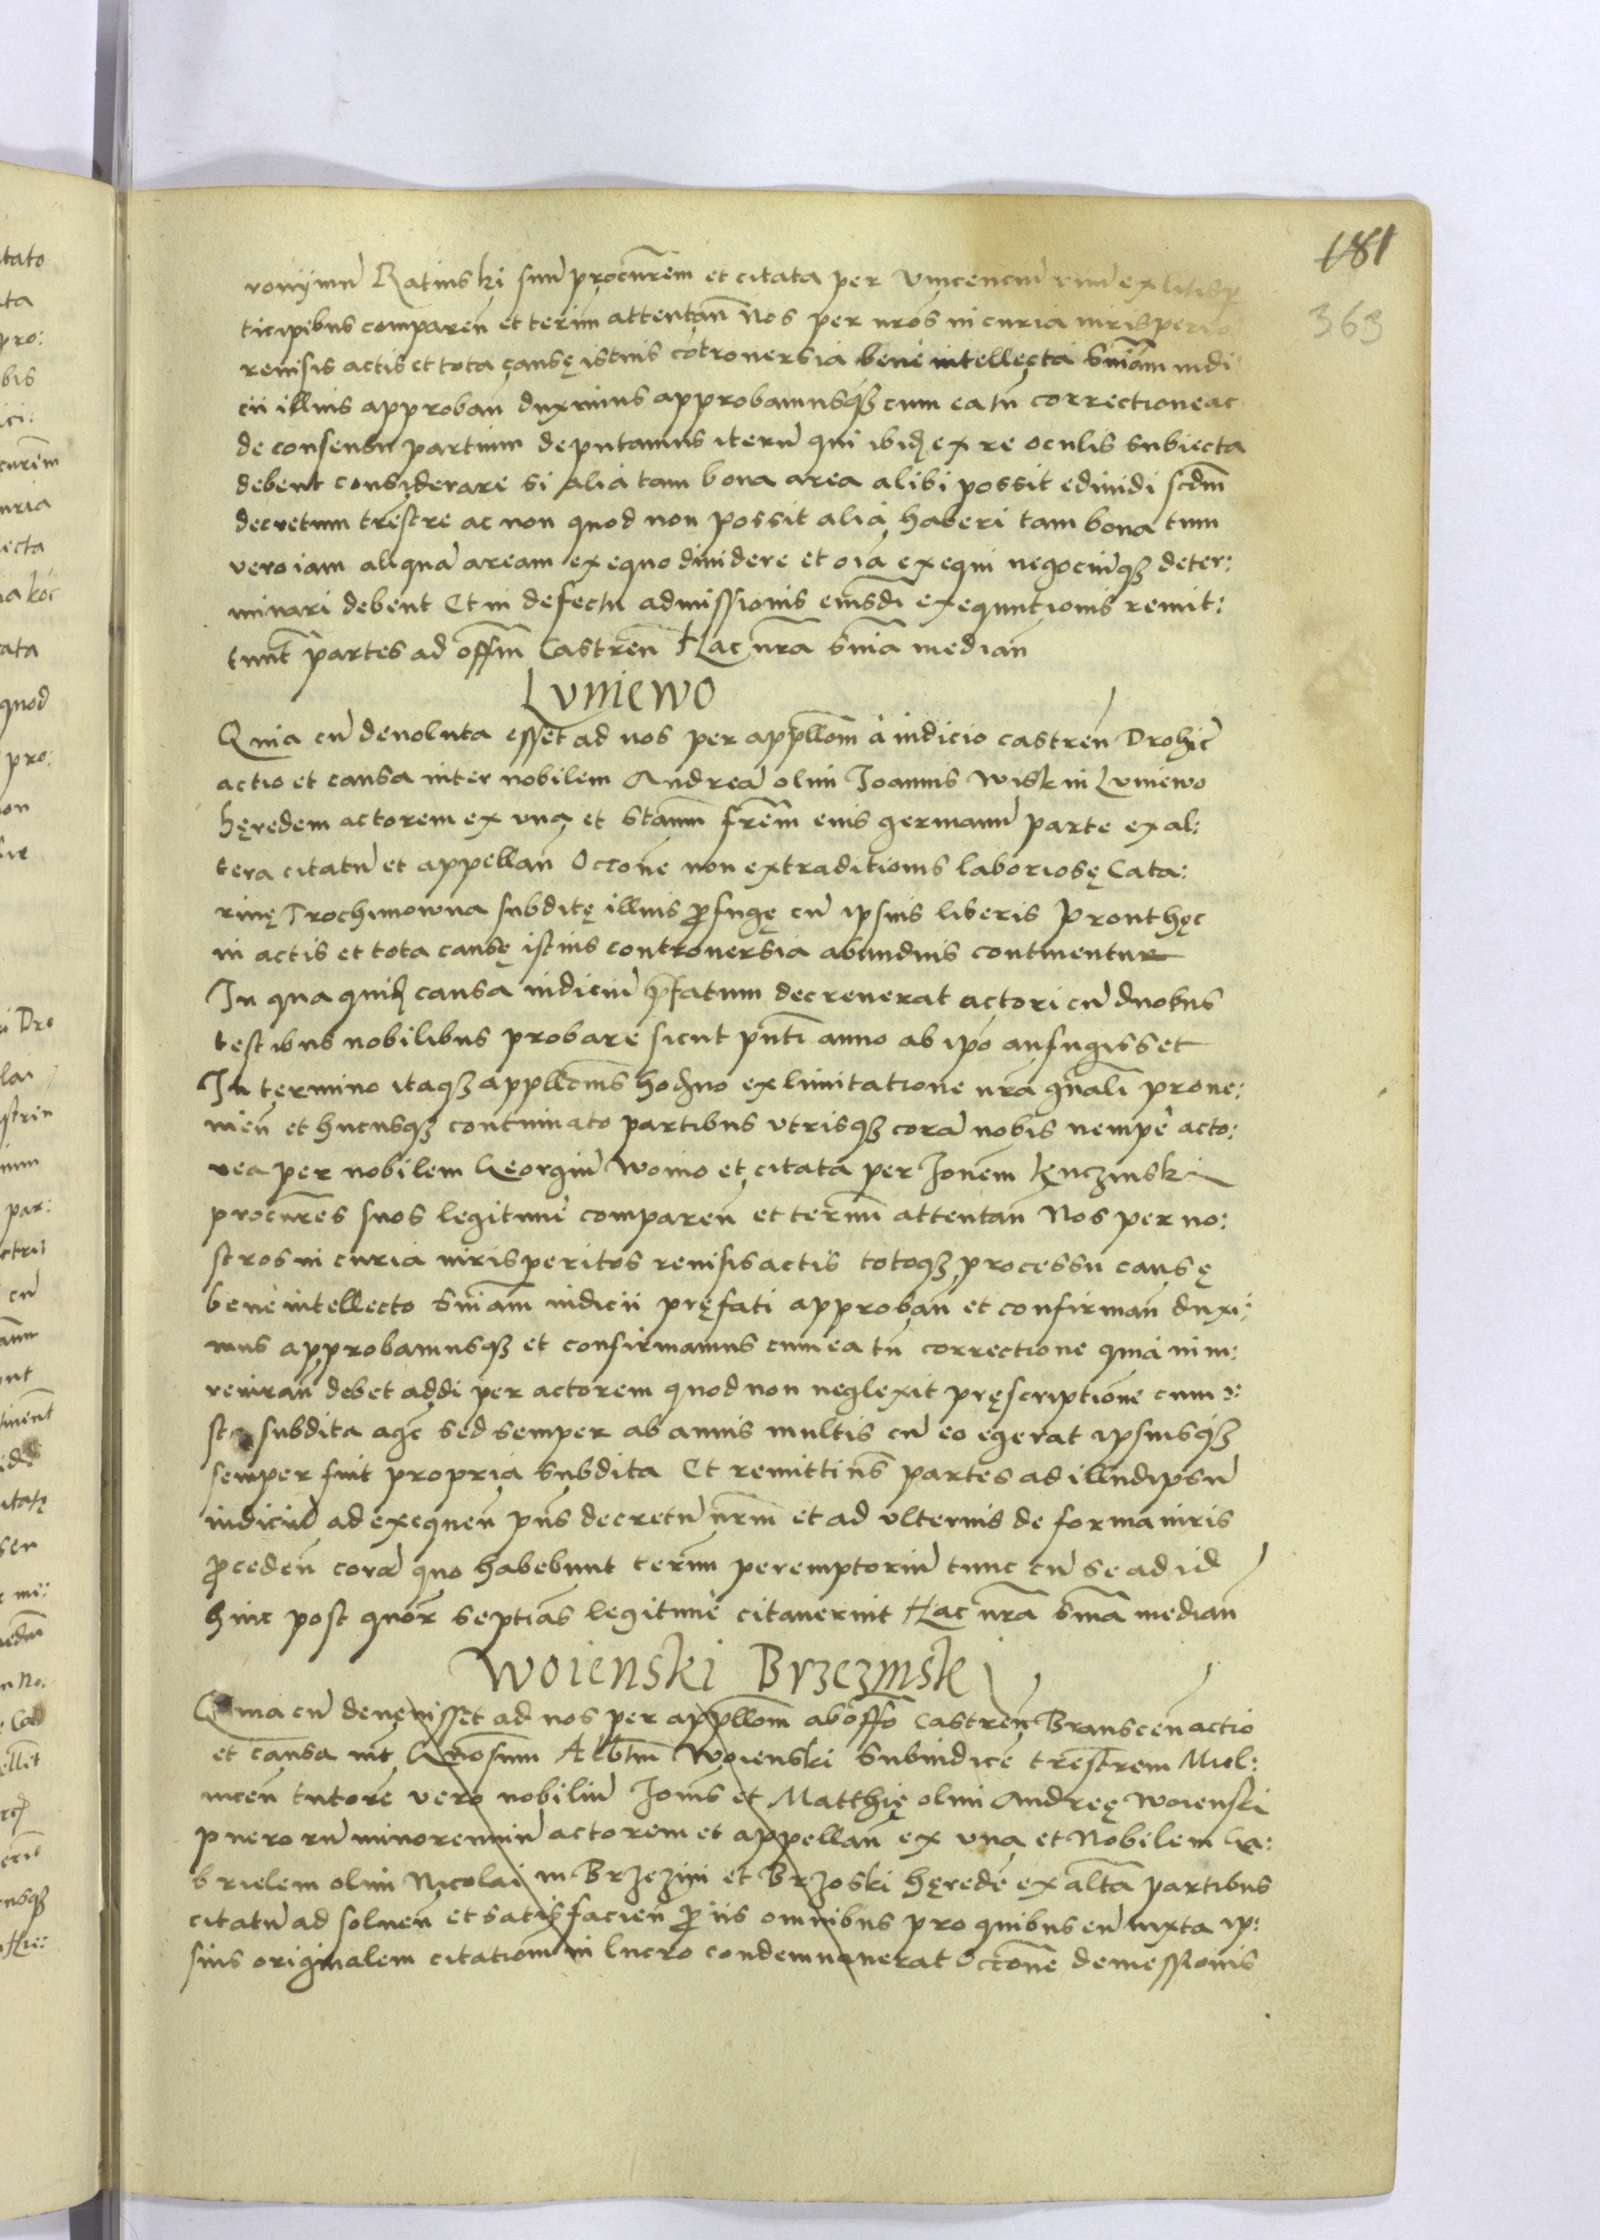 181
363
ronijmū Ratinski suū procurem et citata per Vincenciū unū ex litis p
ticipibus comparen et terim attentan Nos per nros in curia iurisperito
revisis actis et tota causę istius cōtroversia bene intellecta Sniam iudi
cii illius approban duximus approbamusqз cum ea tn correctione ac
de consensu partium deputamus iterū qui ibid ex re oculis subiecta
debent considerare si alia tam bona area alibi possit edividi scdm
decretum trestre ac non quod non possit alia haberi tam bona tum
vero iam aliquā aream ex equo dividere et oīa exequi negociūqз deter:
minari debent Et in defectu admissionis eiusdi exequutionis remit:
tunt partes ad offm Castren Hac nra Snia median
Lvniewo
Quia cū devoluta esset ad nos per appllom à iudicio castren Drohic
actio et causa inter nobilem Andreā olim Joannis Wisk in Lvniewo
hęredem actorem ex una et Stanm frem eius germanū parte ex al:
tera citatū et appellan Occone non extraditionis laboriosę Cata:
rinę Trochimowna subditę illius pfugę cū ipsius liberis Prout hęc
in actis et tota causę istius controversia abundius continentur
In qua quid causa iudiciū pfatum decreverat actori cū duobus
testibus nobilibus probare sicut pnti anno ab ipo aufugisset
In termino itaqз appllonis hodno ex limitatione nra gnali prove:
nien et hucusqз continuato partibus utrisqз corā nobis nempe acto:
rea per nobilem Georgiū Woino et citata per Jonem Kuczinski
procures suos legitime comparen et termi attentan Nos per no:
stros in curia iurisperitos revisis actis totoqз processu causę
bene intellecto Sniam iudicii pręfati approban et confirman duxi:
mus approbamusqз et confirmamus cum ea tn correctione quia in iu:
reiuran debet addi per actorem quod non neglexit pręscriptione cum i:
sta subdita age sed semper ab annis multis cū eo egerat ipsiusqз
semper fuit propria subdita Et remittims partes ad illud ipsū
iudiciū ad exequen pns decretū nrm et ad ulterius de forma iuris
pceden corā quo habebunt termi peremptoriū tunc cū se ad id
hinc post quor septias legitime citaverint Hac nra Snia median
Woienski Brzezinski
Quia cū devenisset ad nos per appllom ab offo Castren Branscen actio
et causa int Gnosum Albtm Woienski Subiudice trestrem Miel:
nicen tutore vero nobiliū Jonis et Matthię olim Andreę Woienski
puerorū minorenniū actorem et appellan ex una et Nobilem Ga:
brielem olim Nicolai in Brzezini et Brzoski hęredē ex alta partibus
citatū ad solven et satisfacien p iis omnibus pro quibus eū iuxta ip:
sius originalem citationē in lucro condemnaverat Occone demessionis